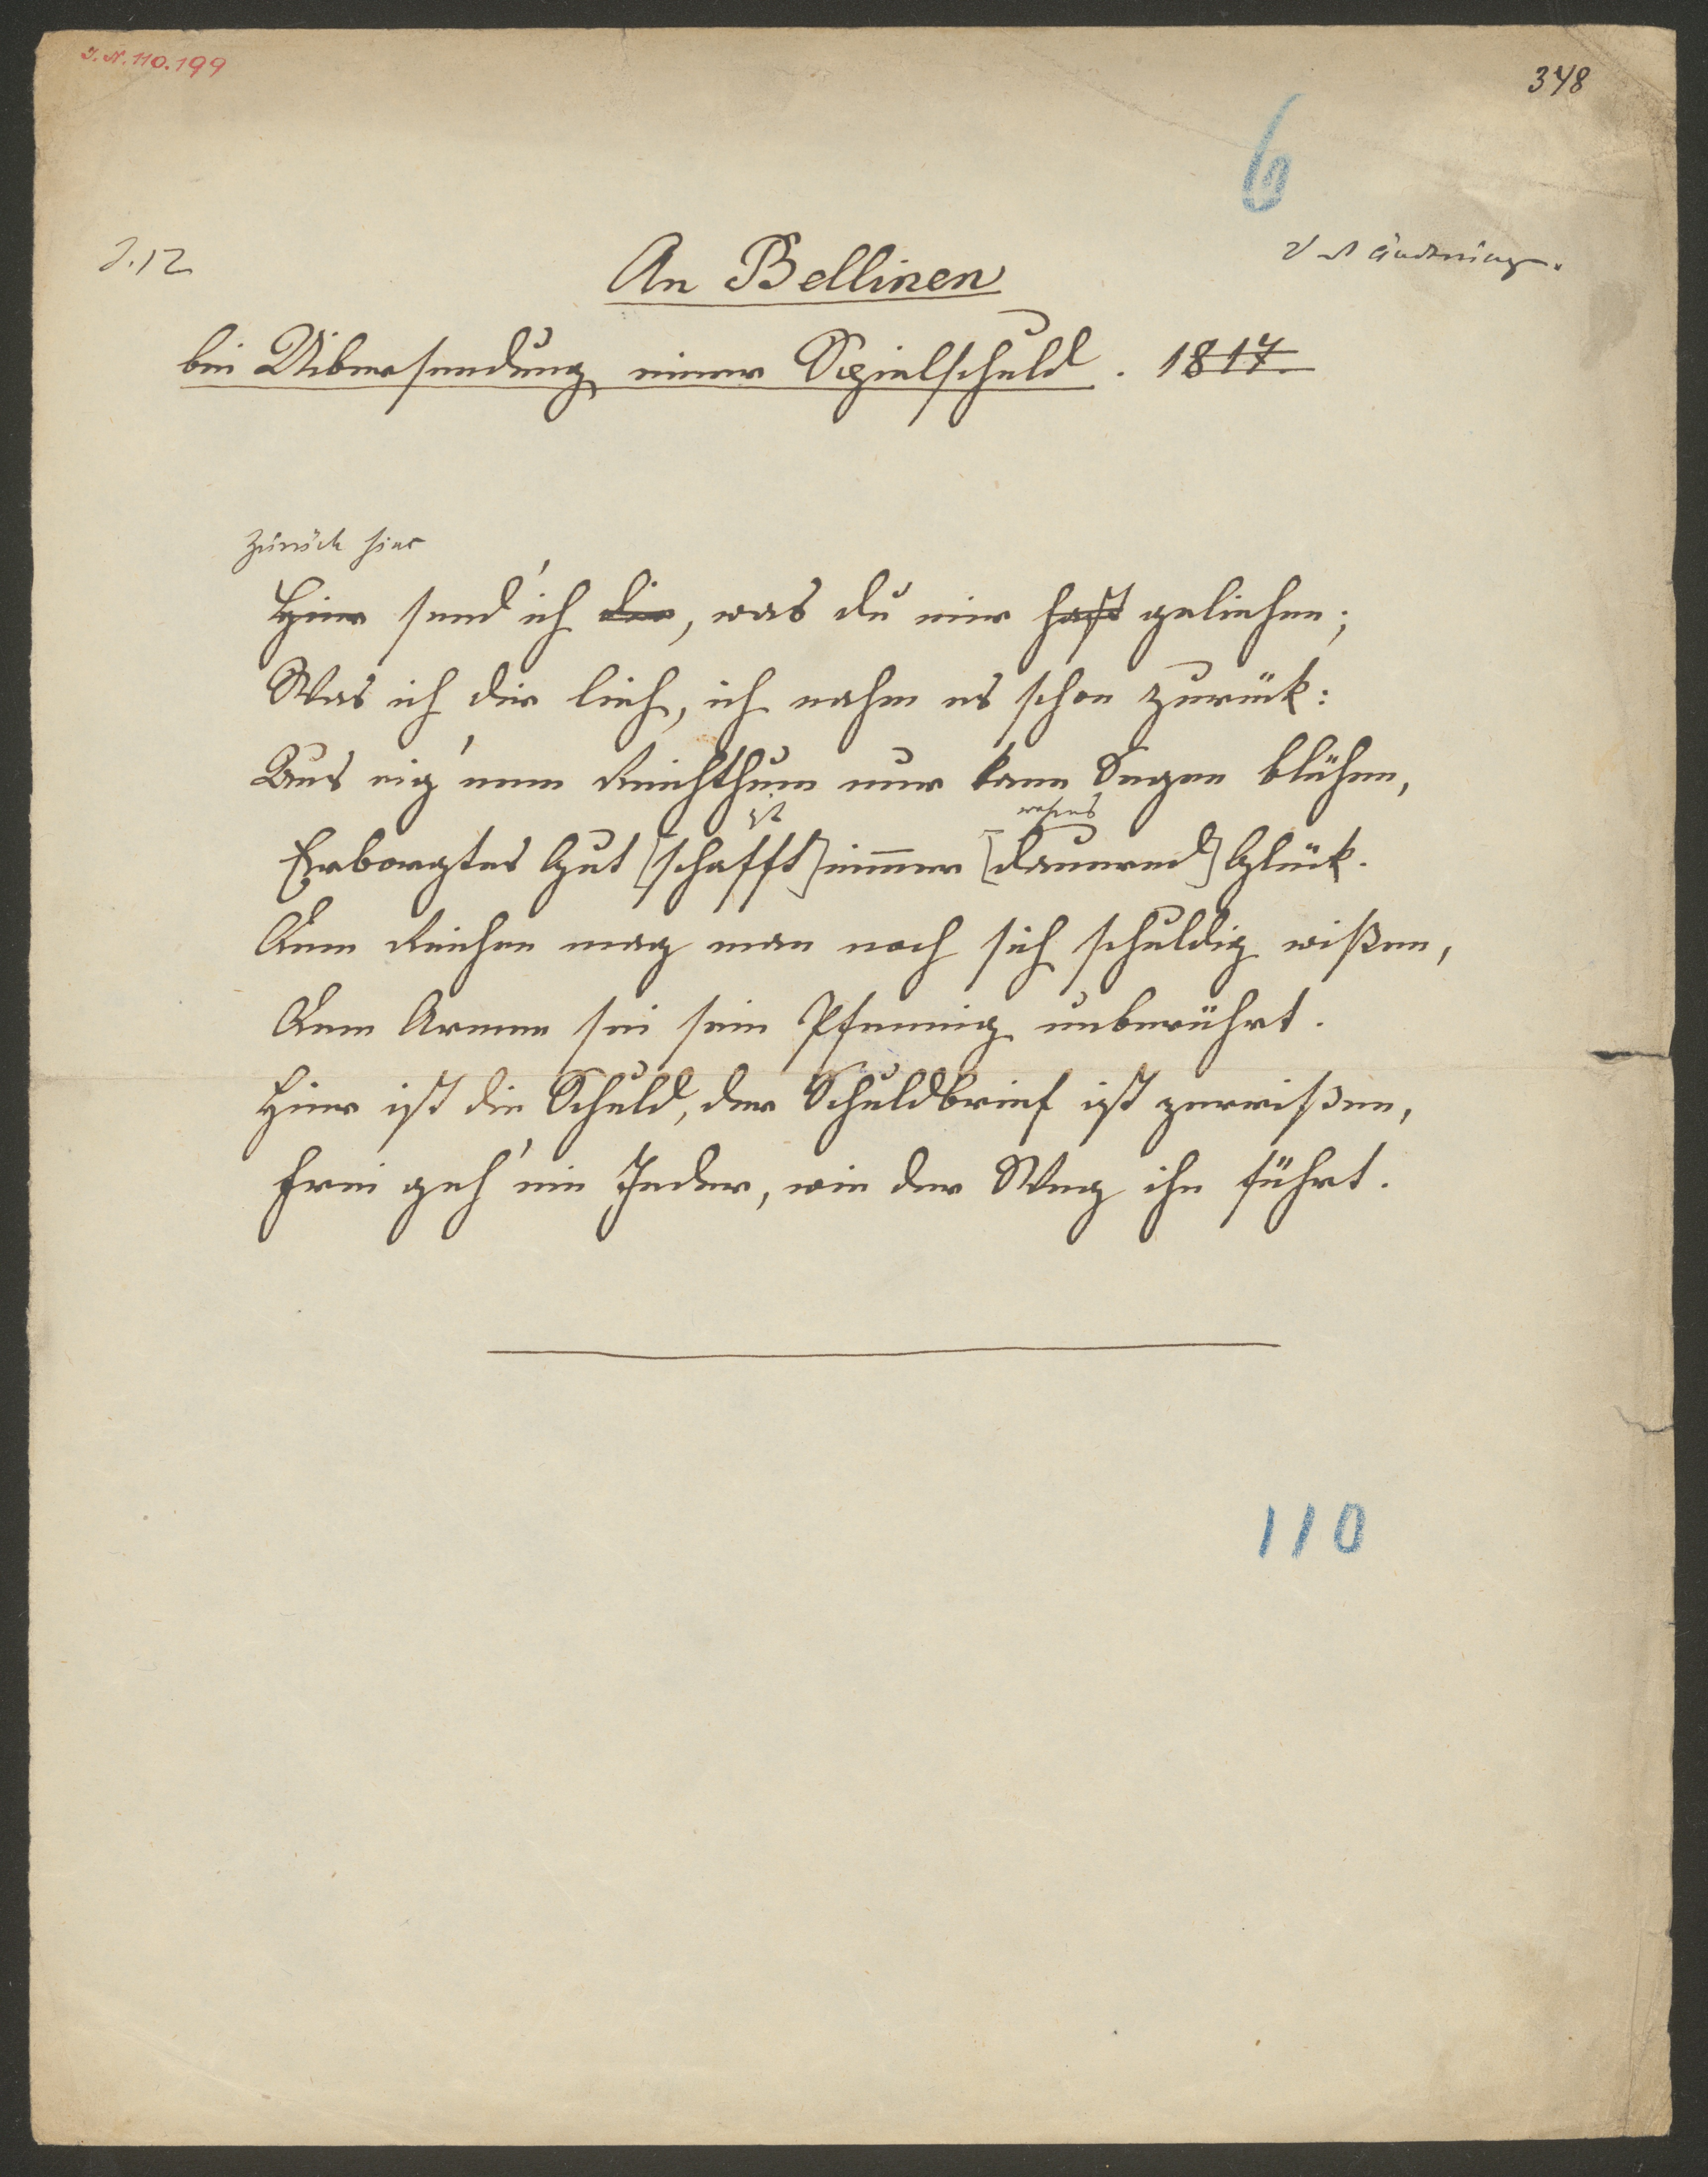 I. N. 110.199
348
6
An Bellinen
bei Uibersendung einer Spielschuld. 1817.
zurück hier
Hier send' ich dir, was du mir hast geliehen;
Was ich dir lieh, ich nahm es schon zurück:
Aus eig'nem Reichthum nur kann Segen blühen,
ist wahres
Erborgtes Gut [schafft] nimmer [dauernd] Glück.
Dem Reichen mag man noch sich schuldig wißen,
Dem Armen sei sein Pfennig unberührt.
Hier ist die Schuld, der Schuldbrief ist zerrißen,
Frei geh' ein Jeder, wie der Weg ihn führt.
110